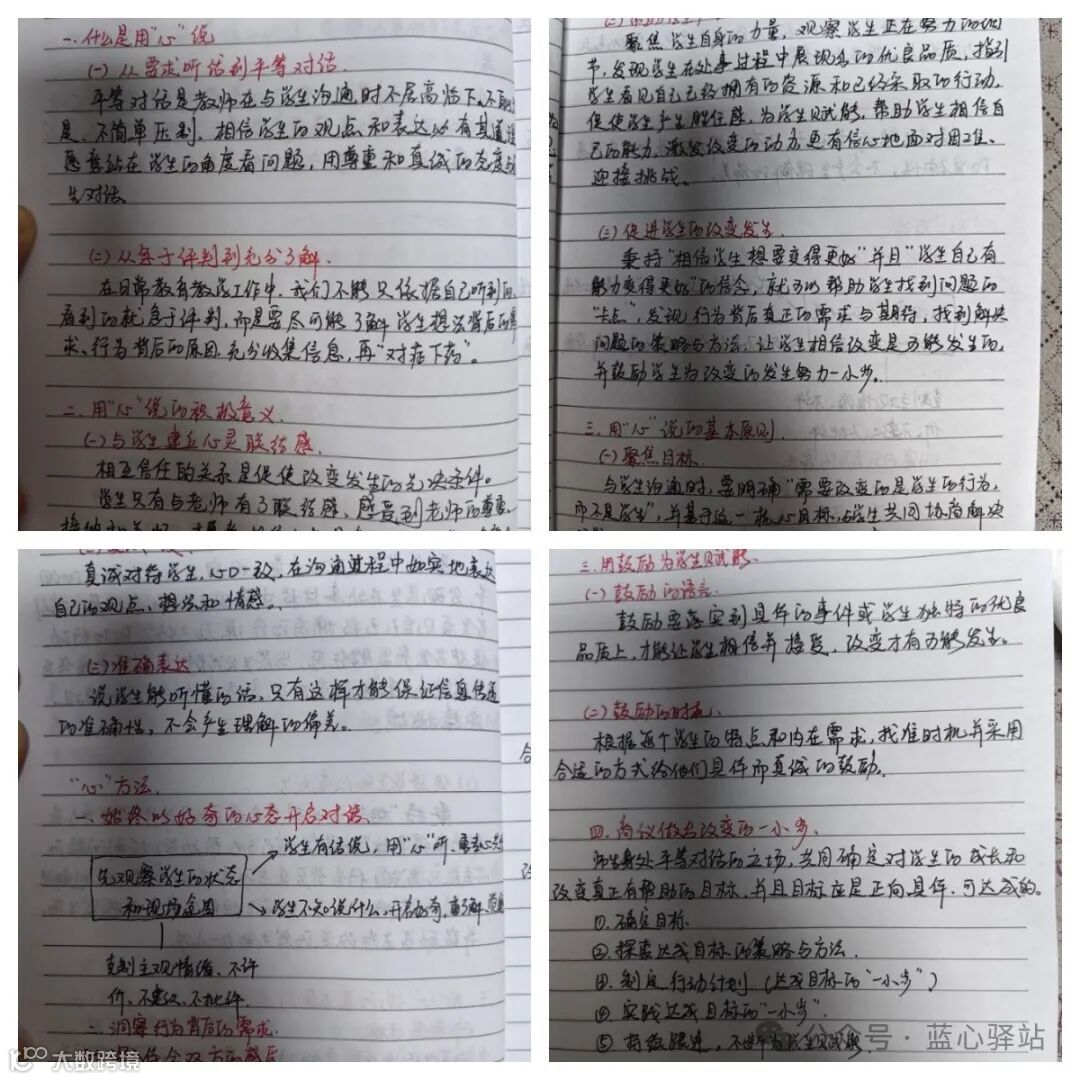 一.什么是用“心”说
(一) 从要求听话到平等对话.
平等对话是教师在与学生沟通时不居高临下、不
是、不简单压制、相信学生的观点和表达必有其道理
愿意站在学生的角度看问题，用尊重和真诚的态度与
生对话.
(二) 从急于评判到充分了解.
在日常教育教学工作中，我们不能只依据自己听到的
看到的就急于评判，而是要尽可能了解学生想法背后的需
求、行为背后的原因.充分收集信息，再“对症下药”。
二. 用“心”说的积极意义.
(一) 与学生建立心灵联结感.
相互信任的关系是促使改变发生的先决条件。
学生只有与老师有了联结感、感受到老师的尊重、
聚焦学生自身的力量，观察学生正在努力的细
节，发现学生在处事过程中展现出的优良品质，指引
学生看见自己已经拥有的资源和已经采取的行动，
促使学生产生胜任感，为学生赋能，帮助学生相信自
己的能力，激发改变的动力更有信心地面对困难、
迎接挑战。
(三) 促进学生的改变发生
秉持“相信学生想要变得更好”并且“学生自己有
能力变得更好”的信念，就可以帮助学生找到问题的
“卡点”，发现行为背后真正的需求与期待，找到解决
问题的策略与方法，让学生相信改变是可能发生的，
并鼓励学生为改变的发生努力一小步。
三.用“心”说的基本原则.
(一) 聚焦目标
与学生沟通时，要明确“需要改变的是学生的行为，
而不是学生”，并基于这一核心目标，与学生共同协商解决
真诚对待学生，心口一致，在沟通过程中如实地表达
自己的观点、想法和情感。
(三) 准确表达
说学生能听懂的话，只有这样才能保证信息传递
的准确性，不会产生理解的偏差。
“心”方法.
一、始终以好奇的心态开启对话.
学生有话说，用“心”听、
先观察学生的状态
和现场氛围
学生不知说什么，开启好奇，
克制主观情绪、不评
价、不建议、不批评.
二. 洞察行为背后的需求.
三.用鼓励为学生赋能.
(一) 鼓励的语言.
鼓励要落实到具体的事件或学生独特的优良
品质上，才能让学生相信并接受，改变才有可能发生。
(二) 鼓励的时机.
根据每个学生的特点和内在需求，找准时机并采用
合适的方式给他们具体而真诚的鼓励.
四. 商议做出改变的一小步.
师生身处平等对话的立场，共同确定对学生的成长和
改变真正有帮助的目标，并且目标应是正向、具体、可达成的。
①. 确定目标.
②. 探索达成目标的策略与方法.
③. 制定行动计划 (达成目标的“一小步”)
④ 实践达成目标的“一小步”.
⑤ 持续跟进，
公众号·蓝心驿站
大数跨境